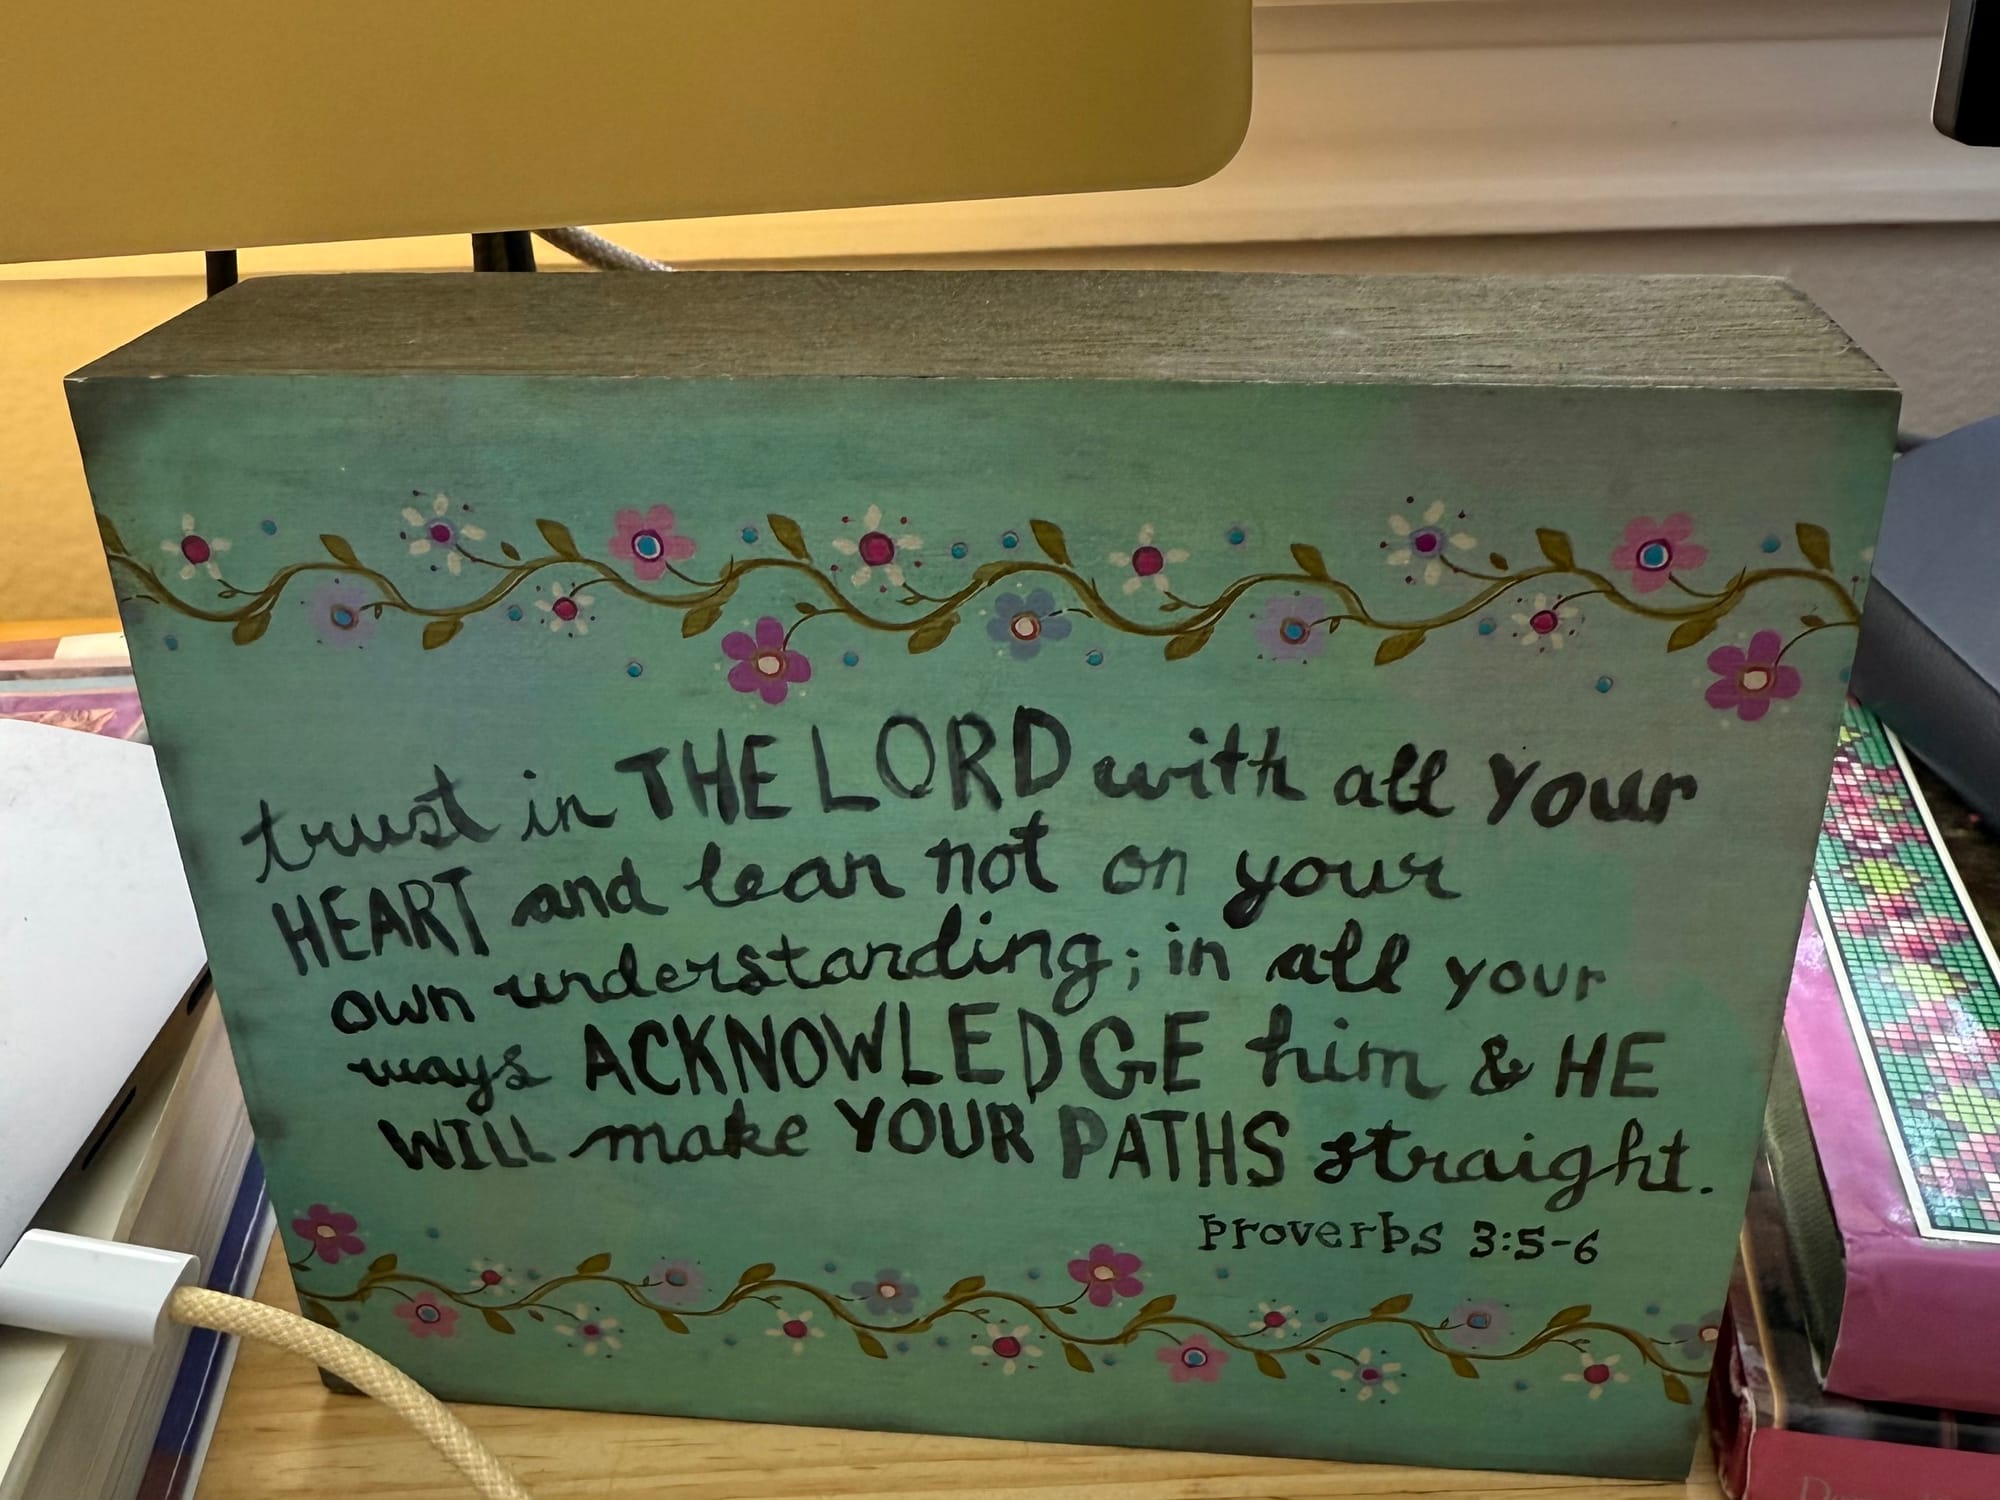 trust in THE LORD with all your
HEART and lean not on your
own understanding; in all your
ways ACKNOWLEDGE him & HE
WILL make YOUR PATHS straight.
Proverbs 3:5-6